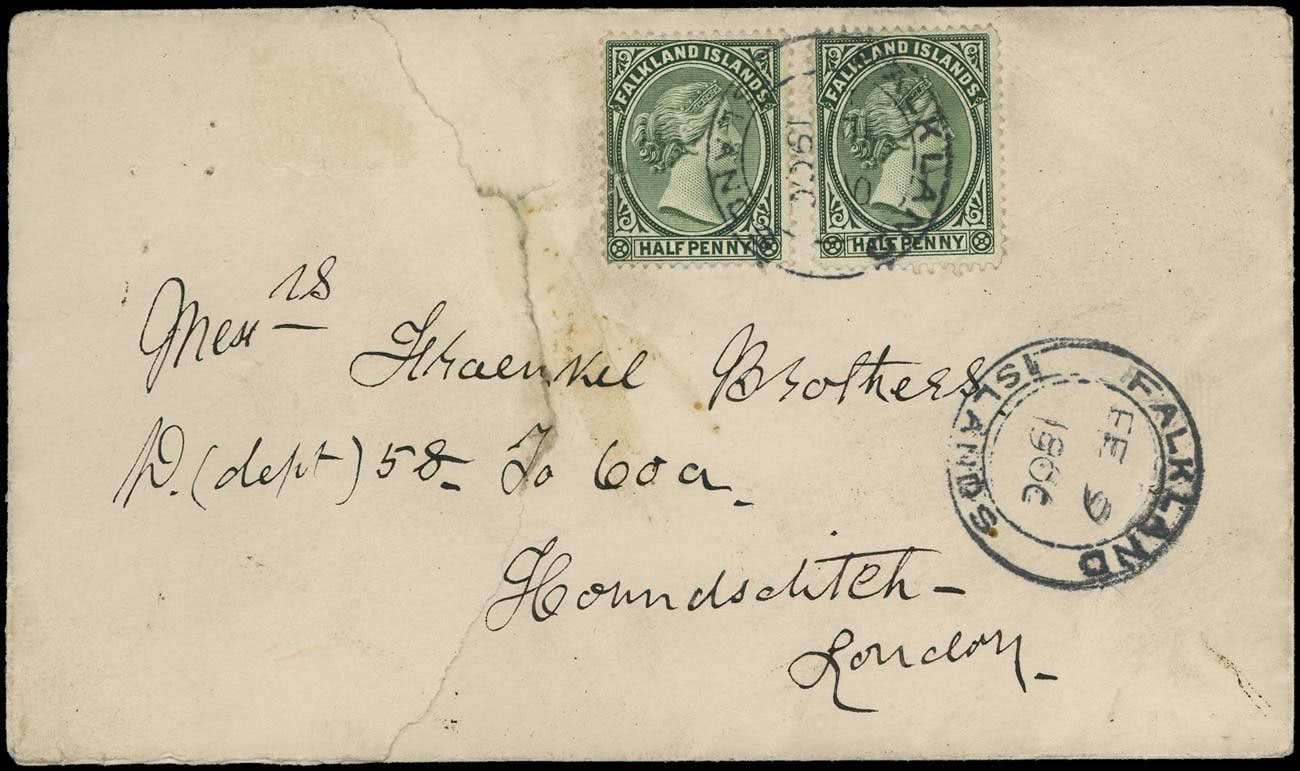 FALKLAND ISLANDS
HALFPENNY
FALKLAND ISLANDS
HALFPENNY
FALKLAND
Messrs Fraenkel Brothers
D. (dept) 58 To 60a
Houndsditch -
London
FALKLAND ISLANDS
FE 9
1900